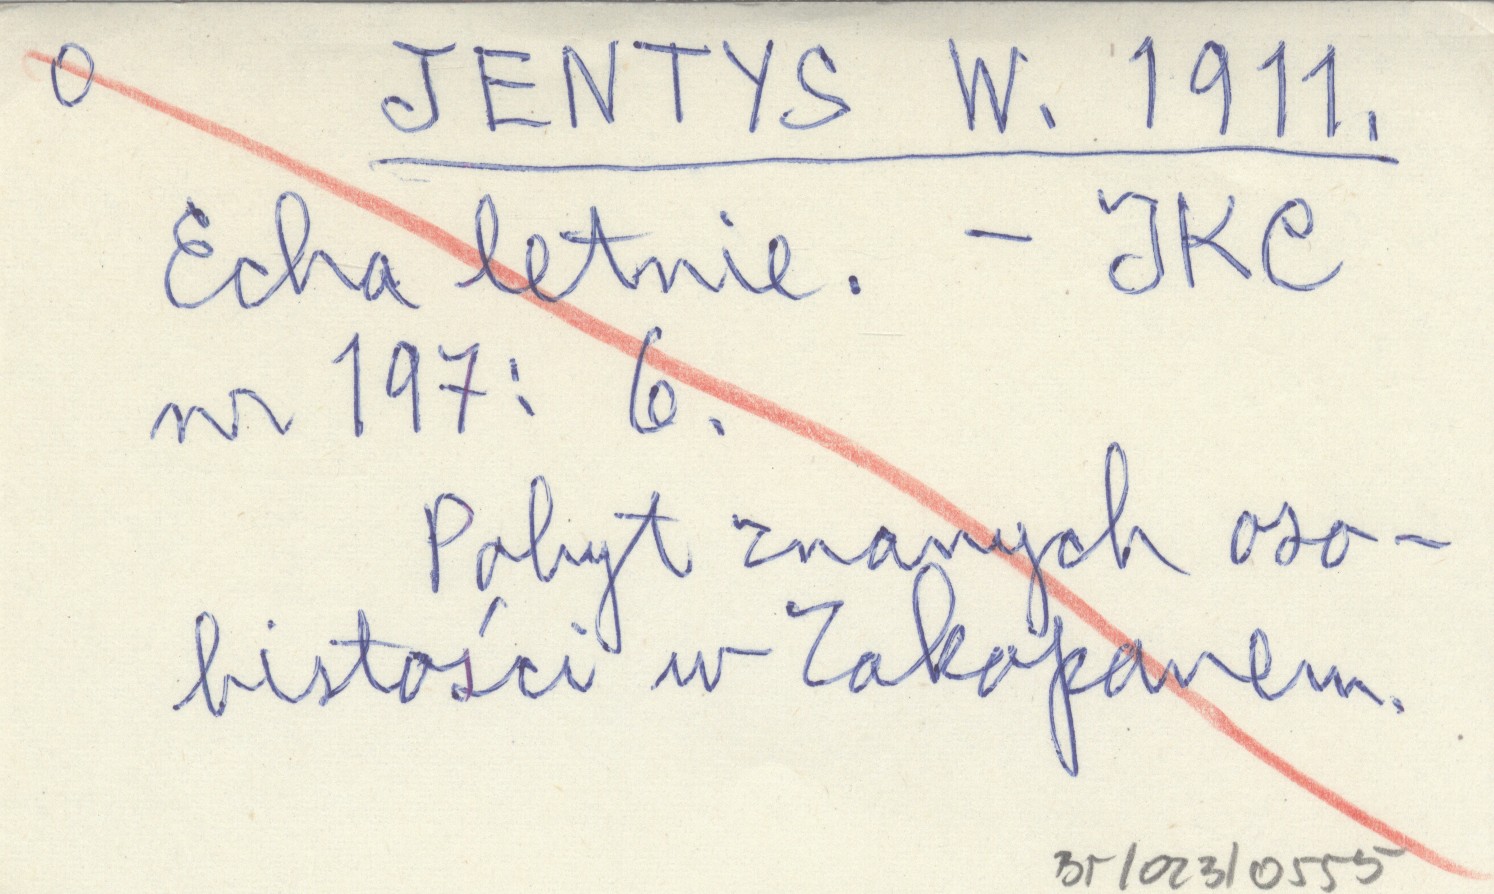 O JENTYS W. 1911.
Echa letnie. – JKC
nr 197: 6.
Pobyt znanych oso-
bistości w Zakopanem.
31/023/0555